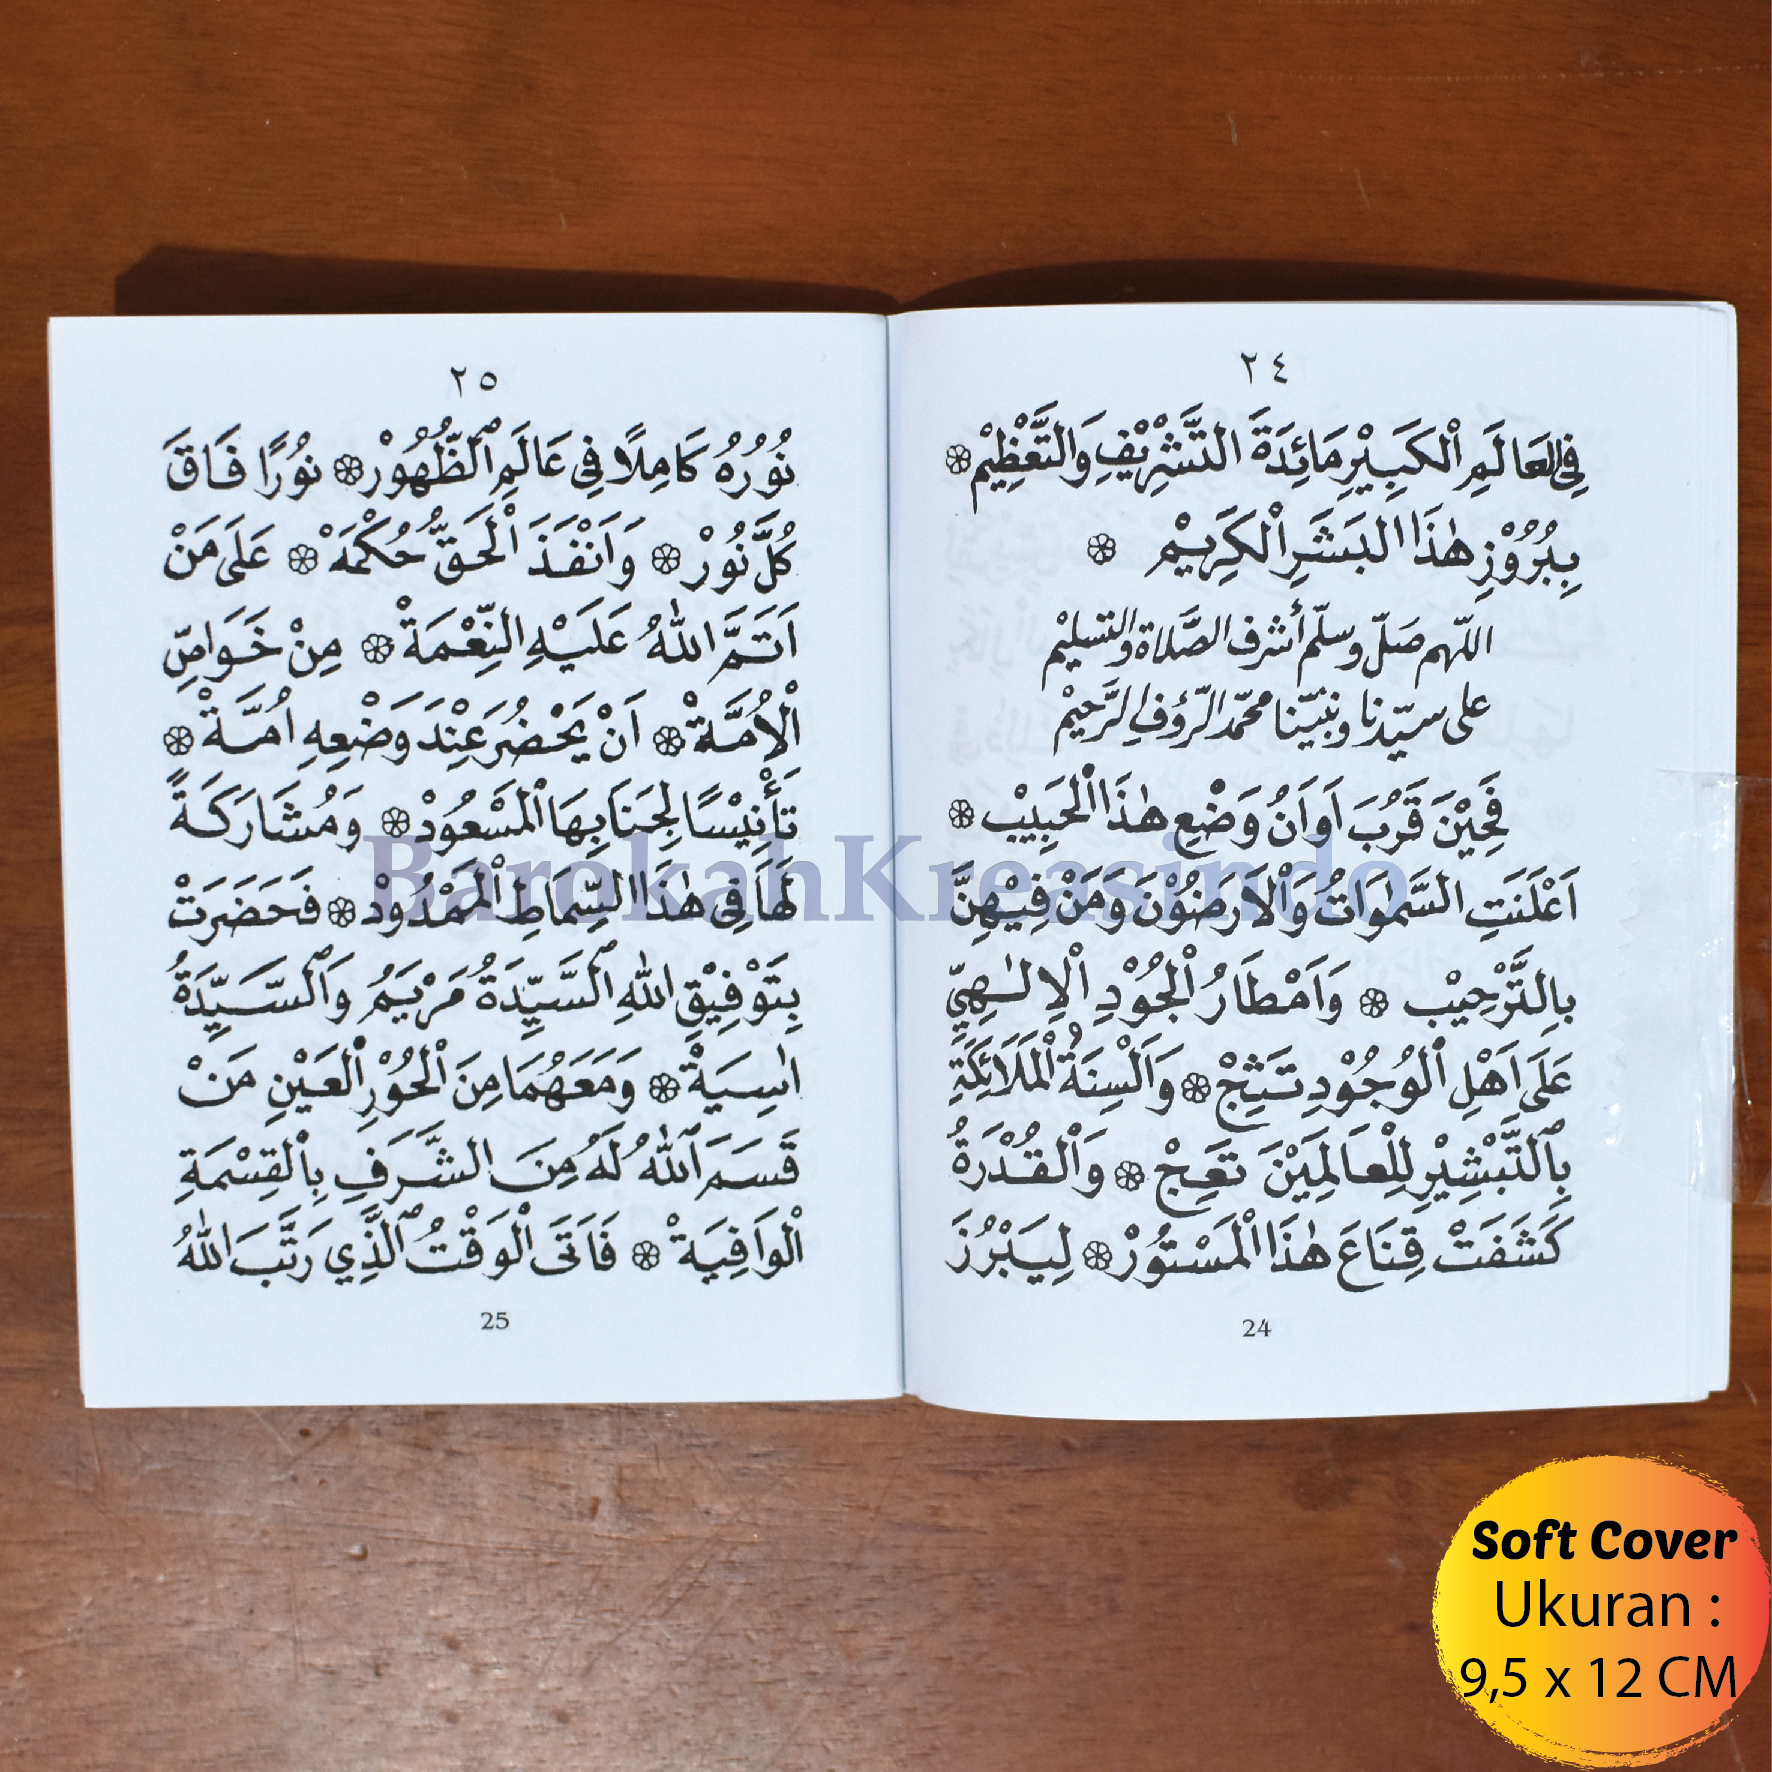 ٢٤
فِى الْعَالَمِ الْكَبِيْرِ مَائِدَةَ التَّشْرِيْفِ وَالتَّعْظِيْمِ ۞
بِبُرُوْزِ هٰذَا الْبَشَرِ الْكَرِيْمِ ۞
اللّهم صَلّ وسلّم أشرف الصَّلاة والتسليم
على سيّدنا ونبيّنا محمّد الرّؤفِ الرَّحِيْم
فَحِيْنَ قَرُبَ اَوَانُ وَضْعِ هٰذَا الْحَبِيْبِ ۞
اَعْلَنَتِ السَّمٰوَاتُ وَالْاَرَضُوْنَ وَمَنْ فِيْهِنَّ
بِالتَّرْحِيْبِ ۞ وَاَمْطَارُ الْجُوْدِ الْاِلٰـهِيِّ
عَلَى اَهْلِ الْوُجُوْدِ تَثِجّْ ۞ وَاَلْسِنَةُ الْمَلَائِكَةِ
بِالتَّبْشِيْرِ لِلْعَالَمِيْنَ تَعِجّْ ۞ وَالْقُدْرَةُ
كَشَفَتْ قِنَاعَ هٰذَا الْمَسْتُوْرْ ۞ لِيَبْرُزَ
24
٢٥
نُوْرُهُ كَامِلًا فِي عَالَمِ الظُّهُوْرْ ۞ نُوْرًا فَاقَ
كُلَّ نُوْرْ ۞ وَاَنْفَذَ الْحَقُّ حُكْمَهْ ۞ عَلَى مَنْ
اَتَمَّ اللّٰهُ عَلَيْهِ النِّعْمَةْ ۞ مِنْ خَوَاصِّ
الْاُمَّةْ ۞ اَنْ يَحْضُرَ عِنْدَ وَضْعِهِ اُمَّةْ ۞
تَأْنِيْسًا لِجَنَابِهَا الْمَسْعُوْدْ ۞ وَمُشَارَكَةً
لَهَا فِى هٰذَا السِّمَاطِ الْمَمْدُوْدْ ۞ فَحَضَرَتْ
بِتَوْفِيْقِ اللّٰهِ السَّيِّدَةُ مَرْيَمُ وَالسَّيِّدَةُ
اٰسِيَةْ ۞ وَمَعَهُمَا مِنَ الْحُوْرِ الْعَيْنِ مَنْ
قَسَمَ اللّٰهُ لَهُ مِنَ الشَّرَفِ بِالْقِسْمَةِ
الْوَافِيَةْ ۞ فَاَتَى الْوَقْتُ الَّذِي رَتَّبَ اللّٰهُ
25
BarokahKreasindo
Soft Cover
Ukuran :
9,5 x 12 CM